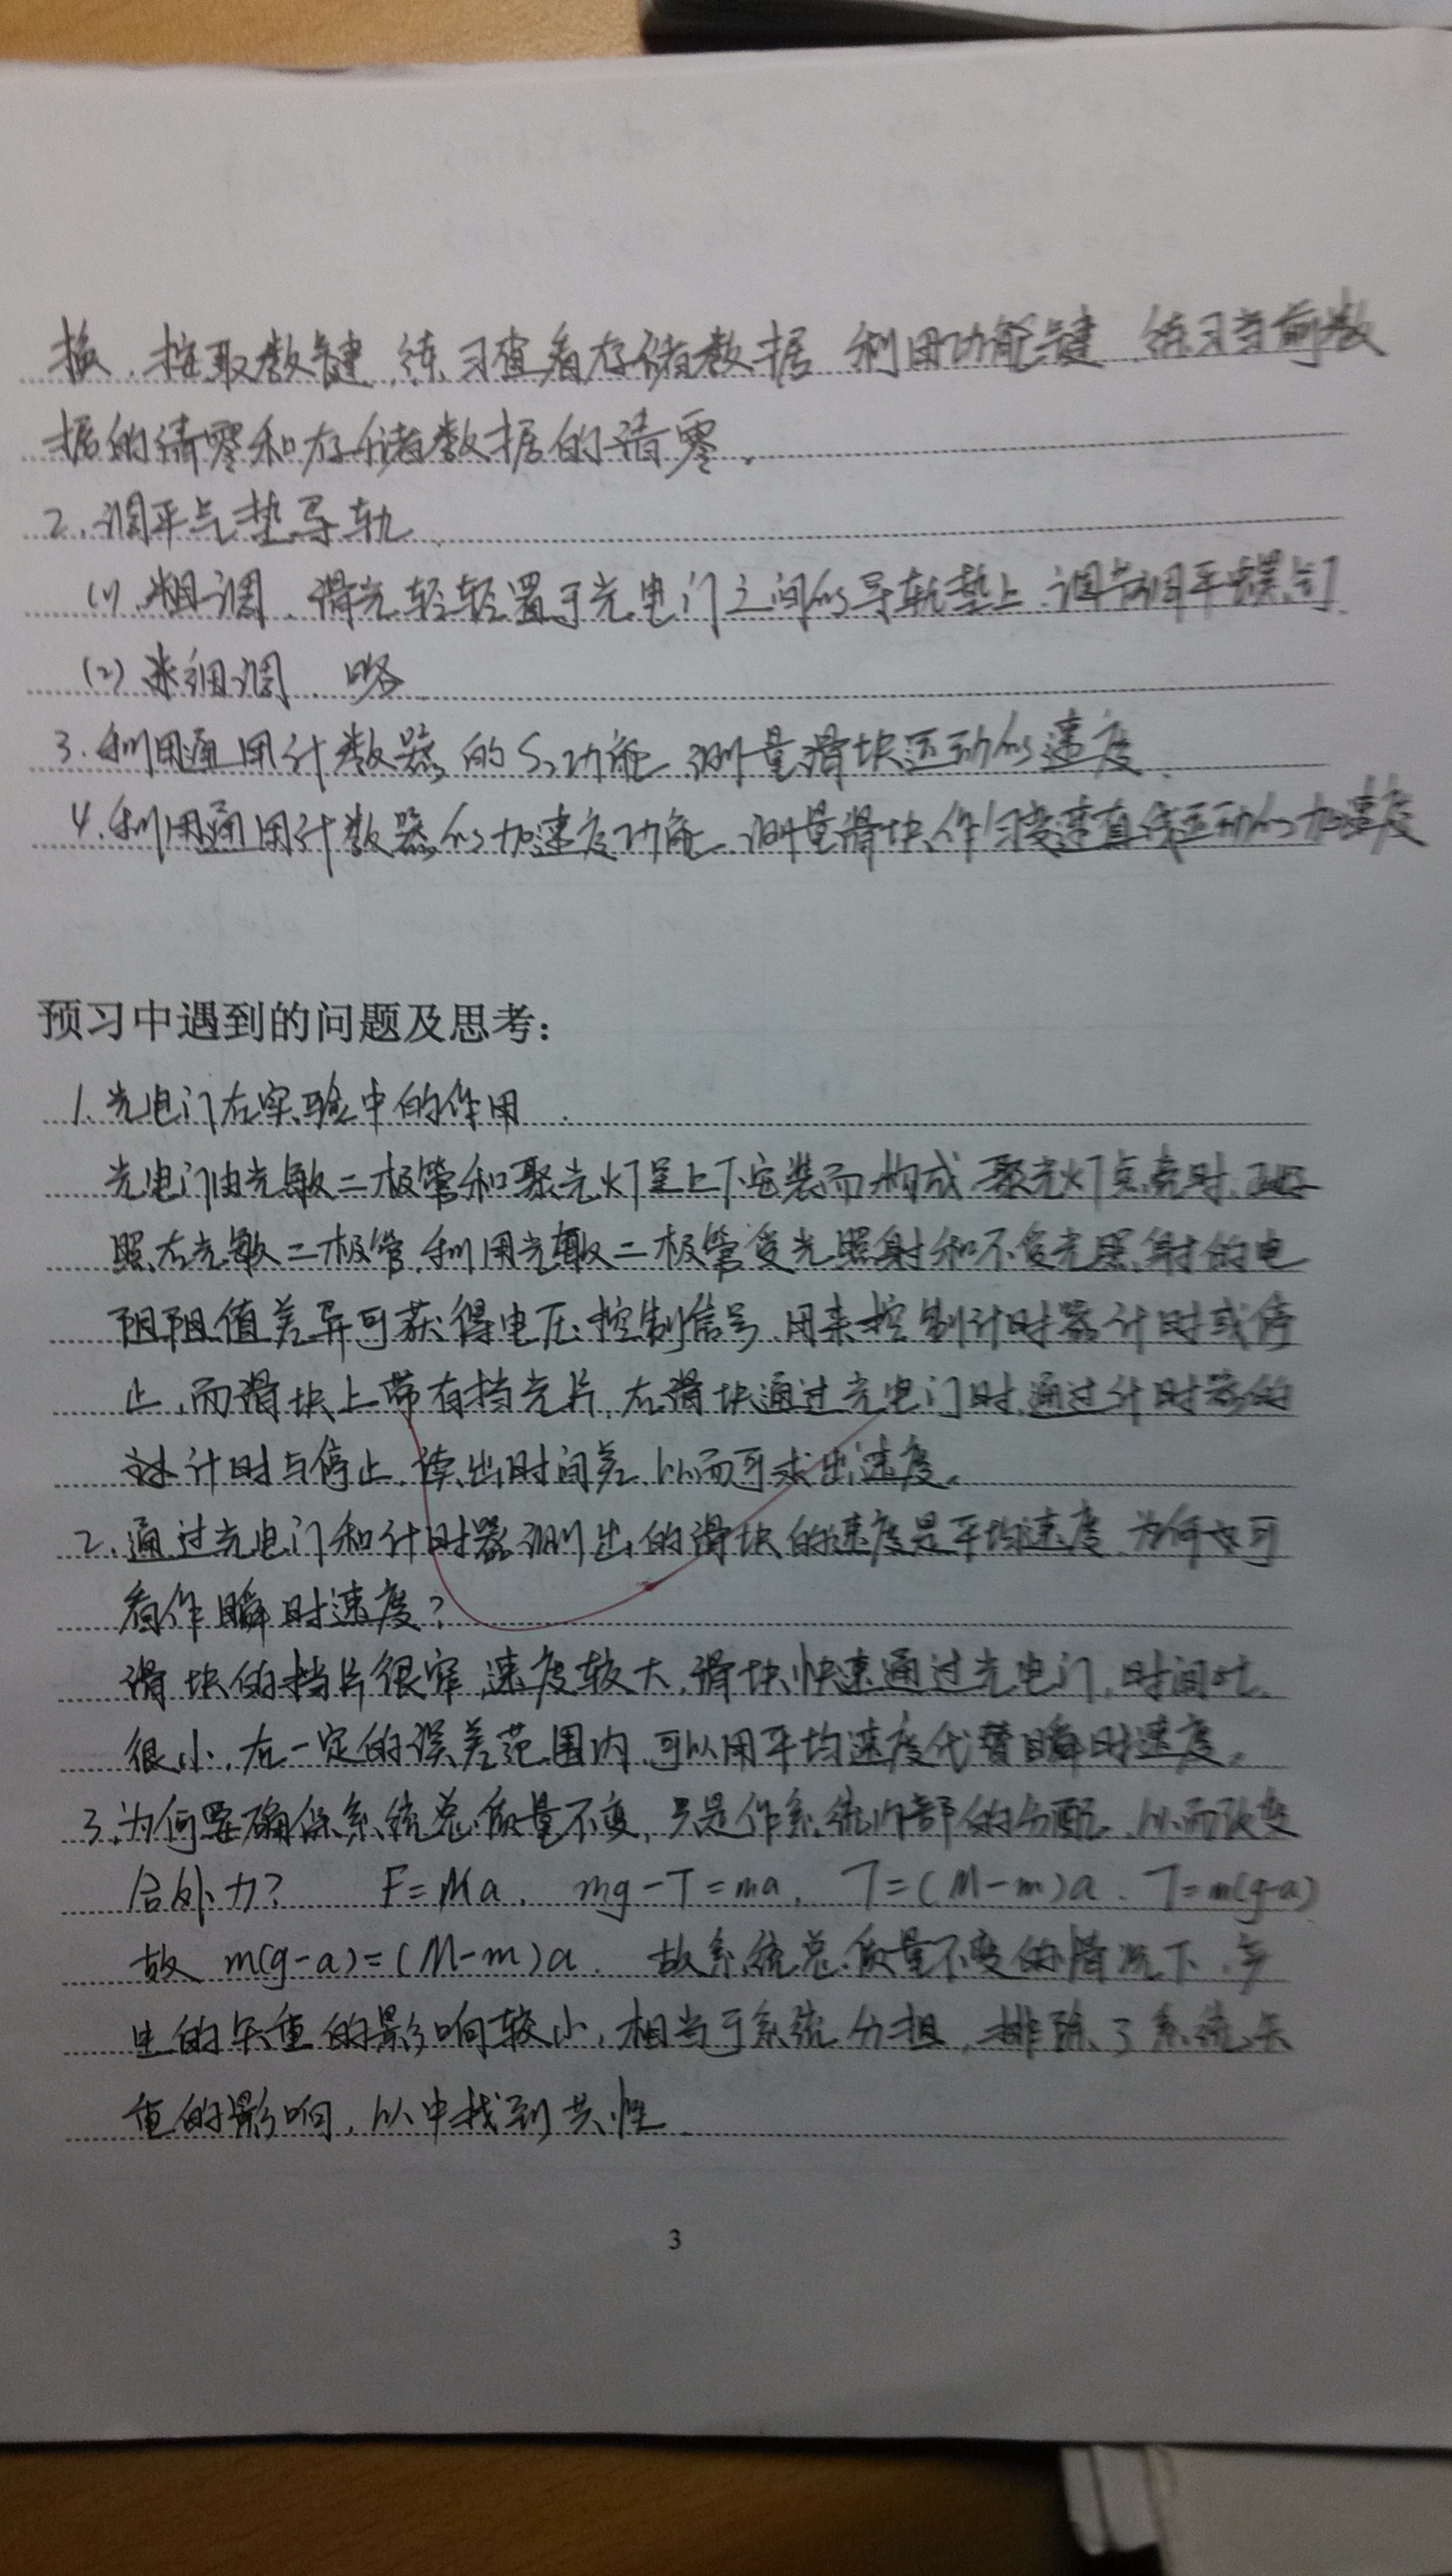 换.按取数键,练习查看存储数据 利用功能键 练习当前数
据的清零和存储数据的清零.
2.调平气垫导轨
(1).粗调.滑先轻轻置于光电门之间的导轨垫上.调节调平螺钉.
(2) 细调.略
3.利用通用计数器的S₂功能 测量滑块运动的速度.
4.利用通用计数器的加速度功能.测量滑块作匀变速直线运动的加速度
预习中遇到的问题及思考:
1.光电门在实验中的作用.
光电门由光敏二极管和聚光灯呈上下安装而构成.聚光灯点亮时,正好
照在光敏二极管,利用光敏二极管受光照射和不受光照射的电
阻阻值差异可获得电压控制信号.用来控制计时器计时或停
止,而滑块上带有挡光片,在滑块通过光电门时,通过计时器的
计时与停止.读出时间差,从而可求出速度.
2.通过光电门和计时器测出的滑块的速度是平均速度,为何可
看作瞬时速度?
滑块的挡片很窄,速度较大,滑块快速通过光电门,时间
很小,在一定的误差范围内,可以用平均速度代替瞬时速度.
3.为何要确保系统总质量不变,只是作系统内部的分配,从而改变
合外力? F=Ma. mg-T=ma. T=(M-m)a. T=m(g-a)
故 m(g-a)=(M-m)a. 故系统总质量不变的情况下,产
生的失重的影响较小,相当于系统分担,排除了系统失
重的影响,从中找到共性.
3